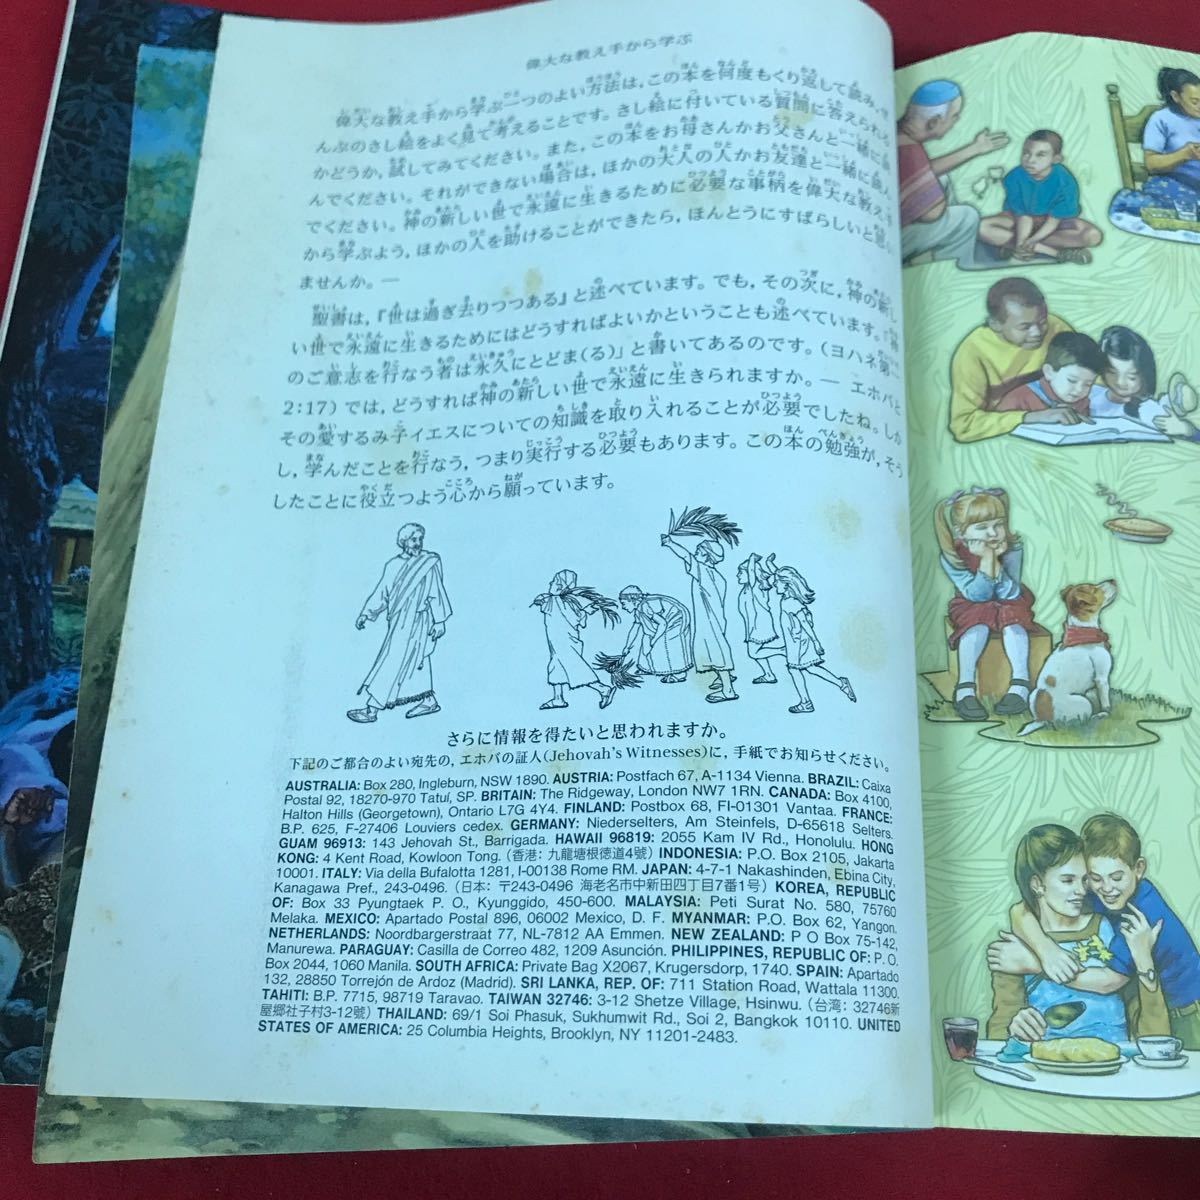 偉大な教え手から学ぶ
偉大な教え手から学ぶ一つのよい方法は，この本を何度もくり返して読み，
んぶのさし絵をよく見て考えることです。さし絵に付いている質問に答えられる
かどうか，試してみてください。また，この本をお母さんかお父さんと一緒に
んでください。それができない場合は，ほかの大人の人かお友達と一緒に読ん
でください。神の新しい世で永遠に生きるために必要な事柄を偉大な教え手
から学ぶよう，ほかの人を助けることができたら，ほんとうにすばらしいと思い
ませんか。—
聖書は，『世は過ぎ去りつつある』と述べています。でも，その次に，神の新し
い世で永遠に生きるためにはどうすればよいかということも述べています。「神
のご意志を行なう者は永久にとどま(る)」と書いてあるのです。(ヨハネ第一
2:17) では，どうすれば神の新しい世で永遠に生きられますか。— エホバと
その愛するみ子イエスについての知識を取り入れることが必要でしたね。しか
し，学んだことを行なう，つまり実行する必要もあります。この本の勉強が，そう
したことに役立つよう心から願っています。
さらに情報を得たいと思われますか。
下記のご都合のよい宛先の，エホバの証人(Jehovah's Witnesses)に，手紙でお知らせください。
AUSTRALIA: Box 280, Ingleburn, NSW 1890. AUSTRIA: Postfach 67, A-1134 Vienna. BRAZIL: Caixa
Postal 92, 18270-970 Tatuí, SP. BRITAIN: The Ridgeway, London NW7 1RN. CANADA: Box 4100,
Halton Hills (Georgetown), Ontario L7G 4Y4. FINLAND: Postbox 68, FI-01301 Vantaa. FRANCE:
B.P. 625, F-27406 Louviers cedex. GERMANY: Niederselters, Am Steinfels, D-65618 Selters.
GUAM 96913: 143 Jehovah St., Barrigada. HAWAII 96819: 2055 Kam IV Rd., Honolulu. HONG
KONG: 4 Kent Road, Kowloon Tong. (香港：九龍塘根德道4號) INDONESIA: P.O. Box 2105, Jakarta
10001. ITALY: Via della Bufalotta 1281, I-00138 Rome RM. JAPAN: 4-7-1 Nakashinden, Ebina City,
Kanagawa Pref., 243-0496. (日本：〒243-0496 海老名市中新田四丁目7番1号) KOREA, REPUBLIC
OF: Box 33 Pyungtaek P. O., Kyunggido, 450-600. MALAYSIA: Peti Surat No. 580, 75760
Melaka. MEXICO: Apartado Postal 896, 06002 Mexico, D. F. MYANMAR: P.O. Box 62, Yangon.
NETHERLANDS: Noordbargerstraat 77, NL-7812 AA Emmen. NEW ZEALAND: P O Box 75-142,
Manurewa. PARAGUAY: Casilla de Correo 482, 1209 Asunción. PHILIPPINES, REPUBLIC OF: P. O.
Box 2044, 1060 Manila. SOUTH AFRICA: Private Bag X2067, Krugersdorp, 1740. SPAIN: Apartado
132, 28850 Torrejón de Ardoz (Madrid). SRI LANKA, REP. OF: 711 Station Road, Wattala 11300.
TAHITI: B.P. 7715, 98719 Taravao. TAIWAN 32746: 3-12 Shetze Village, Hsinwu. (台湾：32746新
屋郷社子村3-12號) THAILAND: 69/1 Soi Phasuk, Sukhumwit Rd., Soi 2, Bangkok 10110. UNITED
STATES OF AMERICA: 25 Columbia Heights, Brooklyn, NY 11201-2483.